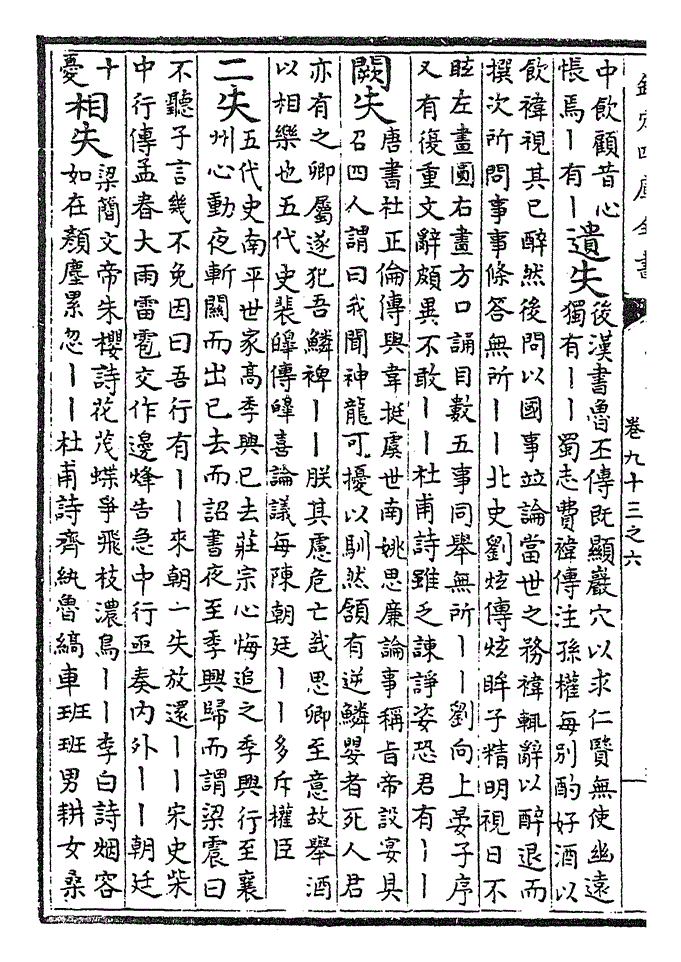 欽定四庫全書
卷九十三之六
中飲顧昔心
悵焉丨有丨
遺失
後漢書魯丕傳既顯巖穴以求仁賢無使幽遠
獨有丨丨蜀志費禕傳注孫權每別酌好酒以
飲禕視其已醉然後問以國事並論當世之務禕輒辭以醉退而
撰次所問事事條答無所丨丨北史劉炫傳炫眸子精明視日不
眩左畫圓右畫方口誦目數五事同舉無所丨丨劉向上晏子序
又有復重文辭頗異不敢丨丨杜甫詩雖乏諫諍姿恐君有丨丨
闕失
唐書杜正倫傳與韋挺虞世南姚思廉論事稱旨帝設宴具
召四人謂曰我聞神龍可擾以馴然頷有逆鱗嬰者死人君
亦有之卿屬遂犯吾鱗裨丨丨朕其慮危亡哉思卿至意故舉酒
以相樂也五代史裴皞傳皞喜論議每陳朝廷丨丨多斥權臣
二失
五代史南平世家高季興已去莊宗心悔追之季興行至襄
州心動夜斬關而出已去而詔書夜至季興歸而謂梁震曰
不聽子言幾不免因曰吾行有丨丨來朝一失放還丨丨宋史柴
中行傳孟春大雨雷雹交作邊烽告急中行亟奏內外丨丨朝廷
十
憂
相失
梁簡文帝朱櫻詩花茂蝶爭飛枝濃鳥丨丨李白詩烟容
如在顏塵累忽丨丨杜甫詩齊紈魯縞車班班男耕女桑